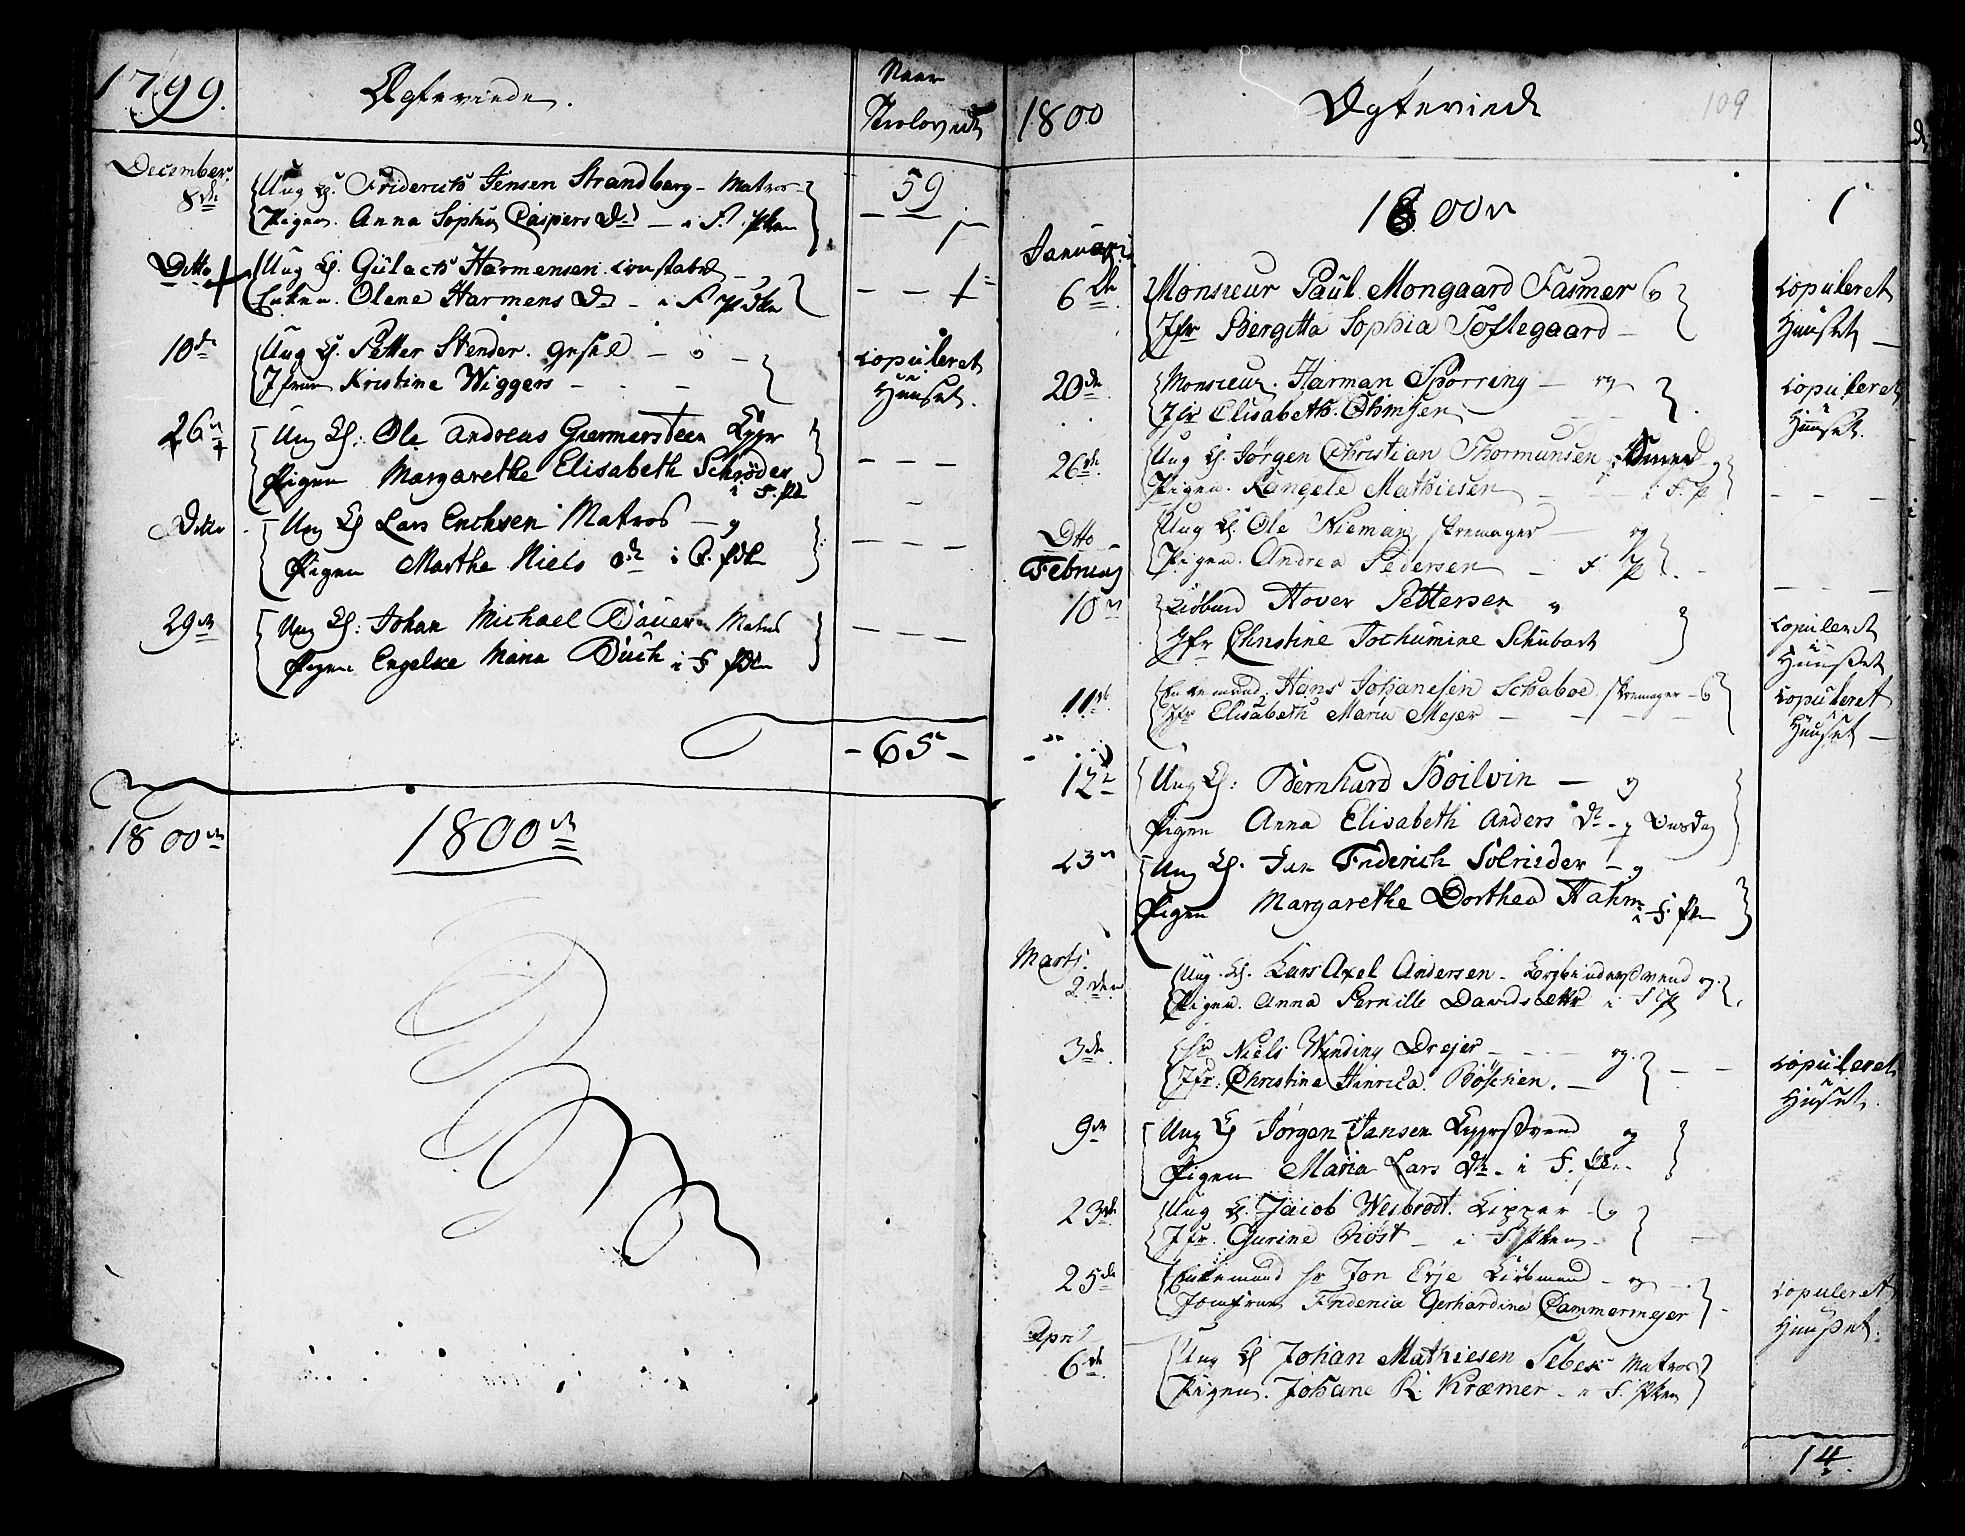 1799.
Ægteviede.
Naar
Trolovede
December
8de
Ung K. Friderich Jensen Strandberg - Matros -
Pigen. Anna Sophia Caspers D. — i F.
59
Ditto
Ung K. Gülach Harmensen Constabel -
Enken. Olene Harmens D. - i F.
10de
Ung K. Petter Stender. - o -
Jfrue Kristine Wiggers - - -
Copuleret
Huuset.
26
Ung K: Ole Andreas Giermersteen
Pigen Margarethe Elisabeth Schrøder
i F.
Ditto
Ung K Lars Erichsen Matros - og
Pigen Marthe Niels i
29
Ung K: Johan Michael Bauer Matros
Pigen Engelke Maria Buch i F
- 65 -
1800
1800
1800
Ægteviede
109
1800
1
Januari
6de
Monsieur Paul Mongaard Fasmer og
Jfr Bergitta Sophia Toftegaard -
Copuleret
Huuset -
20de
Monsieur. Harman Sporring - og
Jfr Elisabeth. Ohmsen -
Copuleret
Huuset.
26de
Ung K. Jørgen Christian Thormunsen og
Pigen. Rangele Mathiesen - i F. P
Ditto
Ung K. Ole Nieman, skremager - og
Pigen. Andrea Pedersen - F. P
Februarj
10
Hover Pettersen
Jfr Christine Jochumine Schubart
Copuleret
Huuset
11
Enkemand. Hans Johanesen Schaboe skremager - og
Jfr Elisabeth Maria Mejer - -
Copuleret
Huuset -
12
Ung K: Bernhard Boilvin - og
Pigen Anna Elisabeth Anders
23
Ung K. Jan Friderich Solrieder - og
Pigen Margarethe Dorthea Hahn
i F.
Marts.
2den
Ung. K. Lars Axel Andersen - og
Pigen. Anna Pernille Davids i F P
3de
Hr Niels Winding Drejer - - og.
Jfr. Christine Hinrica. Böschen. -
Copuleret
Huset.
9
Ung K Jørgen Jansen og
Pigen Maria Lars i F.
23de
Ung K. Jacob Weibrodt. - og
Jfr. Gurine Röst - i F
25de
Enkemand Hr Jon Erje Kiøbmand - og
Jomfrue Fridericia Gerhardina Cammermejer
Copuleret
Huuset.
April
6de
Ung K Johan Mathiesen Seber Matros
Pigen. Johane R. Kræmer - i F.
14.